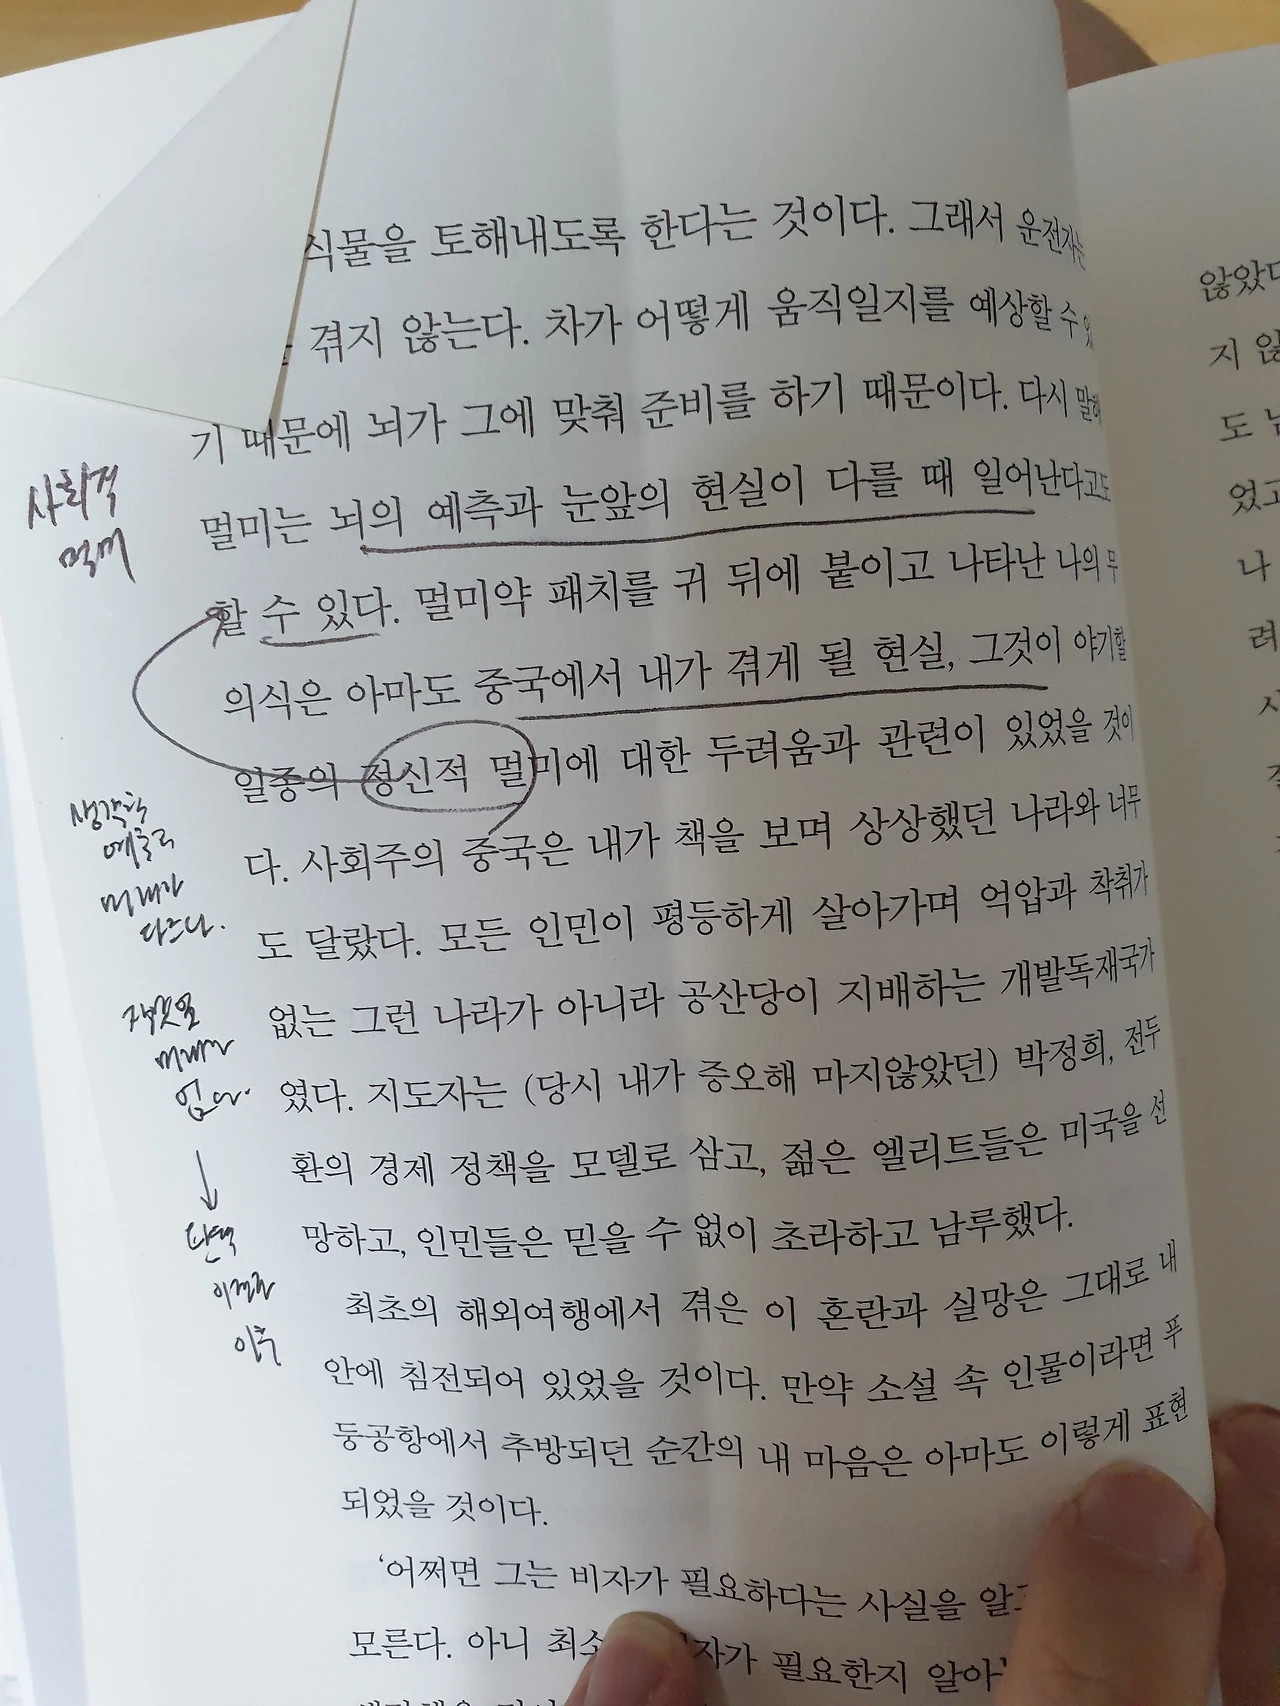 식물을 토해내도록 한다는 것이다. 그래서 운전자는
겪지 않는다. 차가 어떻게 움직일지를 예상할 수 있
기 때문에 뇌가 그에 맞춰 준비를 하기 때문이다. 다시 말해
멀미는 뇌의 예측과 눈앞의 현실이 다를 때 일어난다고도
할 수 있다. 멀미약 패치를 귀 뒤에 붙이고 나타난 나의 무
의식은 아마도 중국에서 내가 겪게 될 현실, 그것이 야기할
일종의 정신적 멀미에 대한 두려움과 관련이 있었을 것이
다. 사회주의 중국은 내가 책을 보며 상상했던 나라와 너무
도 달랐다. 모든 인민이 평등하게 살아가며 억압과 착취가
없는 그런 나라가 아니라 공산당이 지배하는 개발독재국가
였다. 지도자는 (당시 내가 증오해 마지않았던) 박정희, 전두
환의 경제 정책을 모델로 삼고, 젊은 엘리트들은 미국을 선
망하고, 인민들은 믿을 수 없이 초라하고 남루했다.
최초의 해외여행에서 겪은 이 혼란과 실망은 그대로 내
안에 침전되어 있었을 것이다. 만약 소설 속 인물이라면 푸
둥공항에서 추방되던 순간의 내 마음은 아마도 이렇게 표현
되었을 것이다.
‘어쩌면 그는 비자가 필요하다는 사실을
모른다. 아니 필요한지
사회적
멀미
생각한
예측과
미래가
다르다.
않았다
지 않
도
었고
나
려